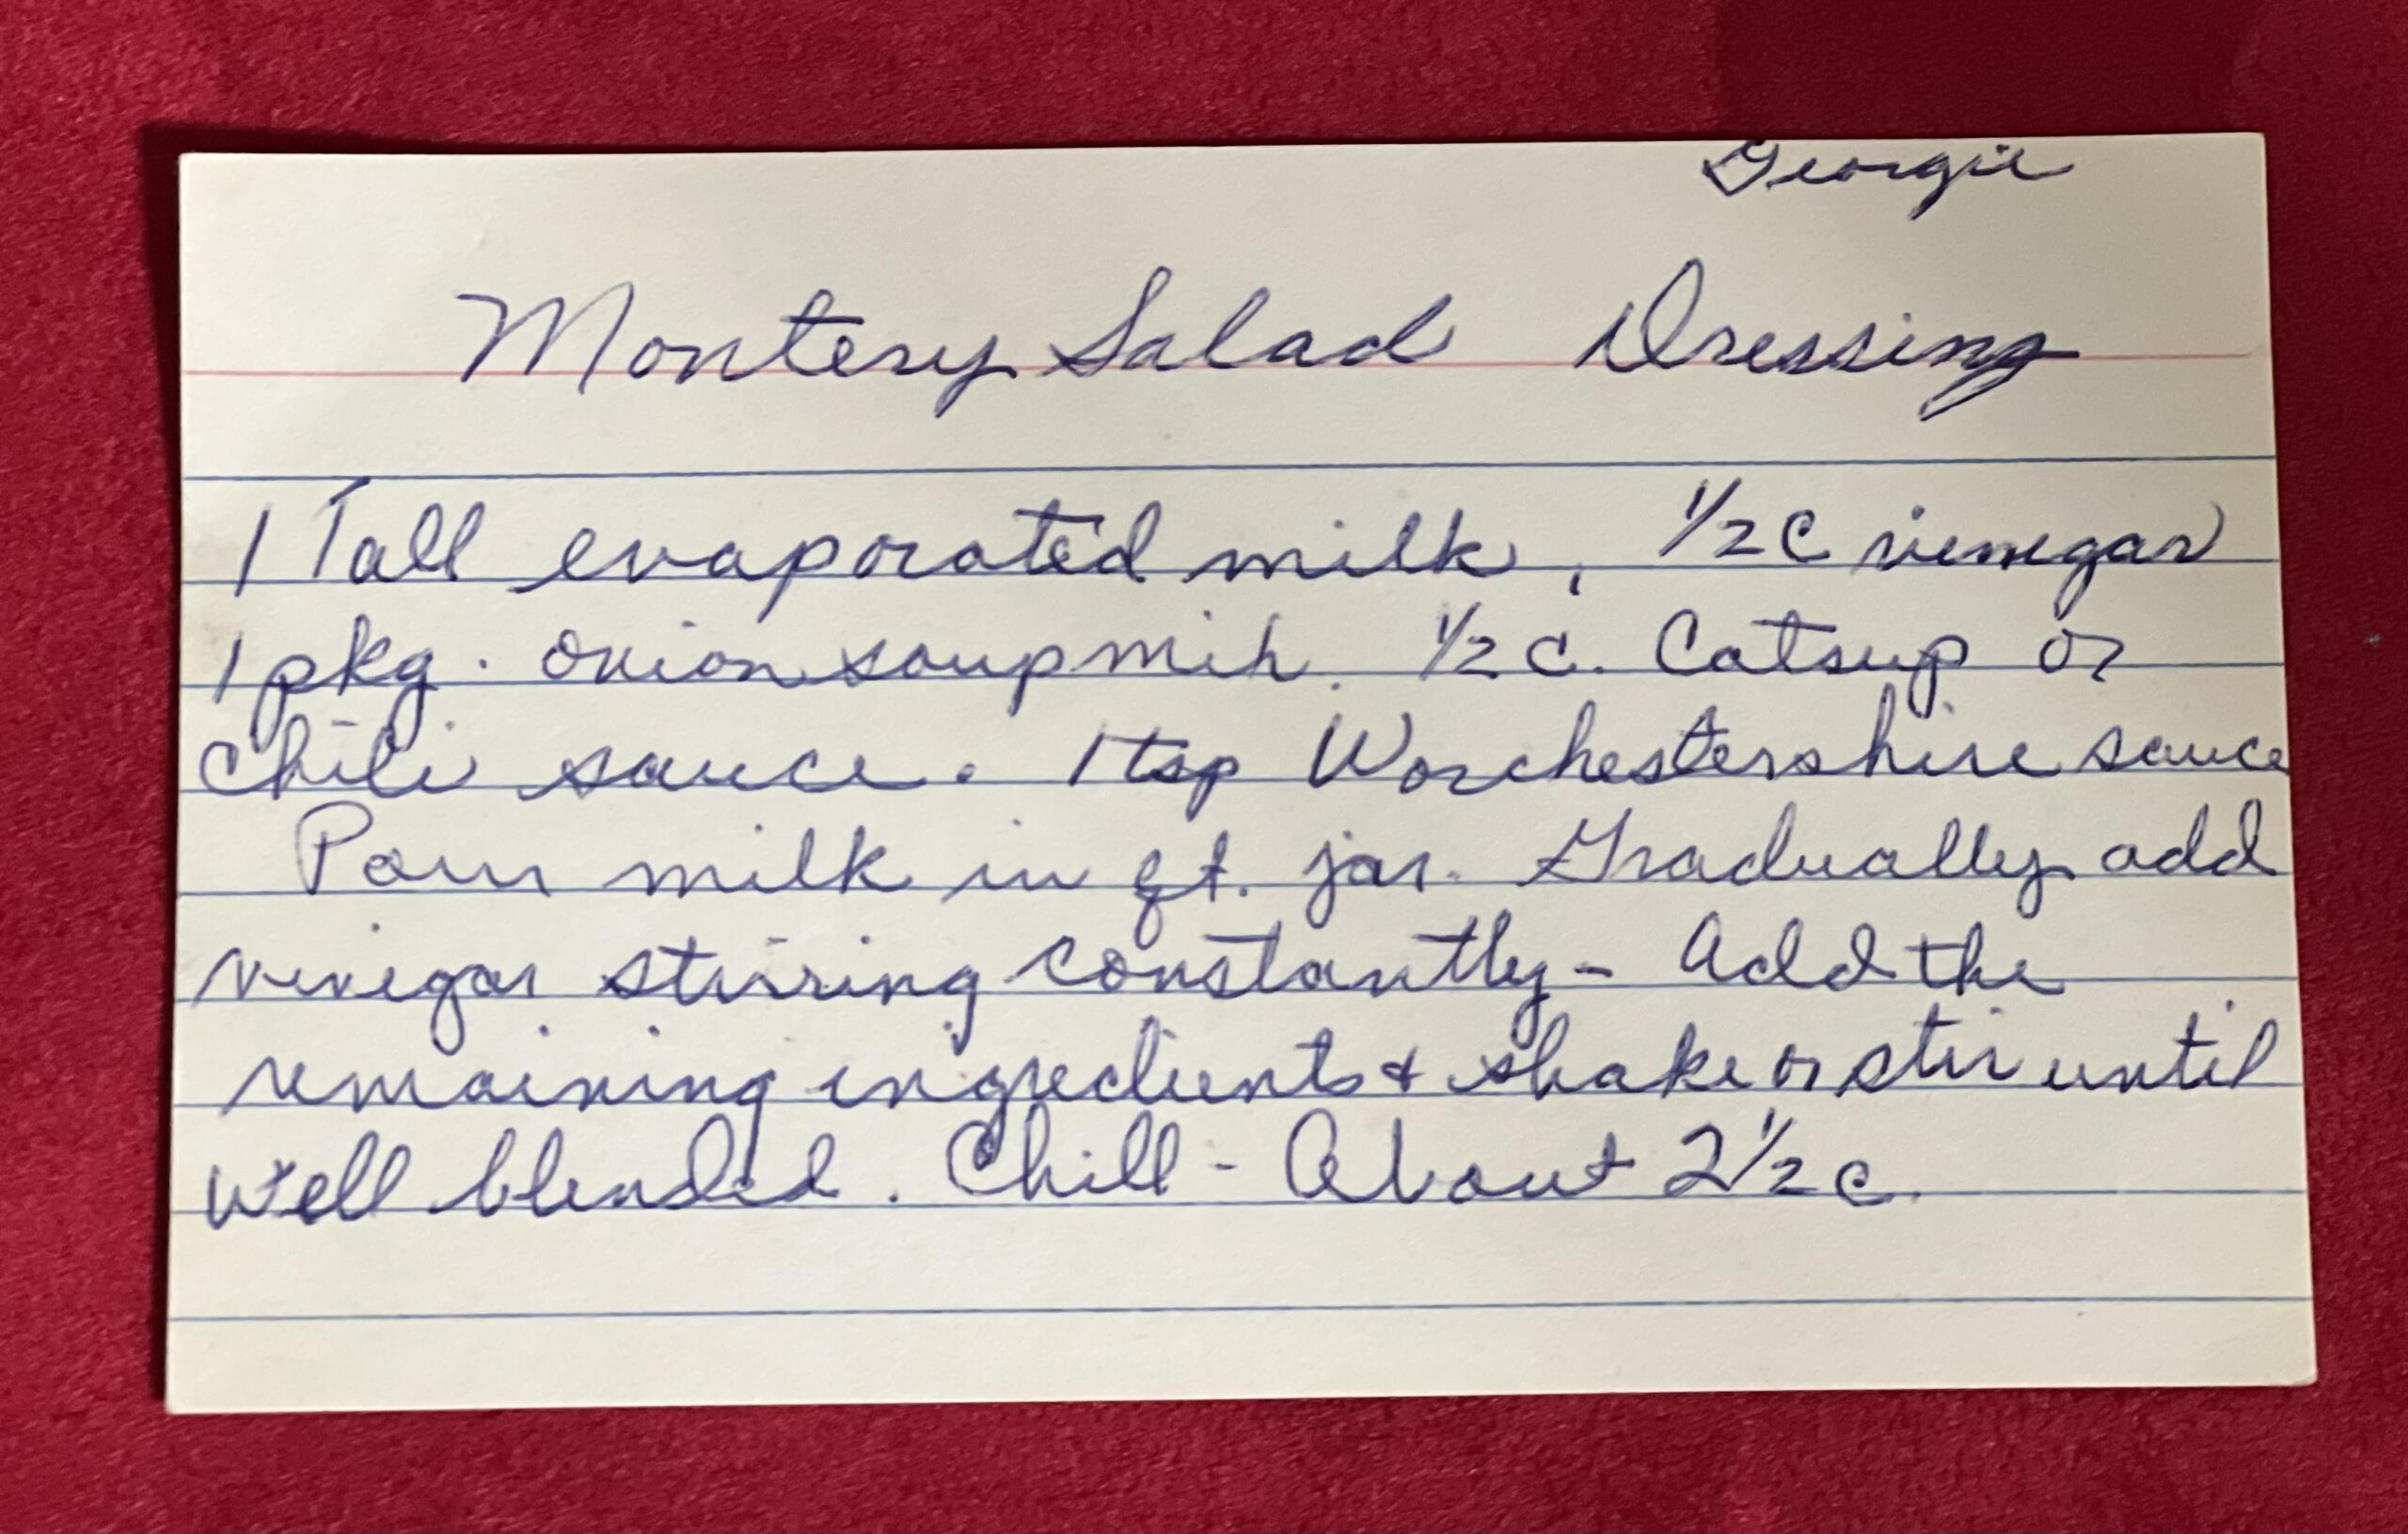 Georgie
Montery Salad Dressing
1 Tall evaporated milk, 1/2 c vinegar
1 pkg. onion soup mix. 1/2 c. Catsup or
Chili sauce. 1 tsp Worchestershire sauce
Pour milk in qt. jar. Gradually add
vinegar stirring constantly - Add the
remaining ingredients & shake or stir until
well blended. Chill - About 2 1/2 c.